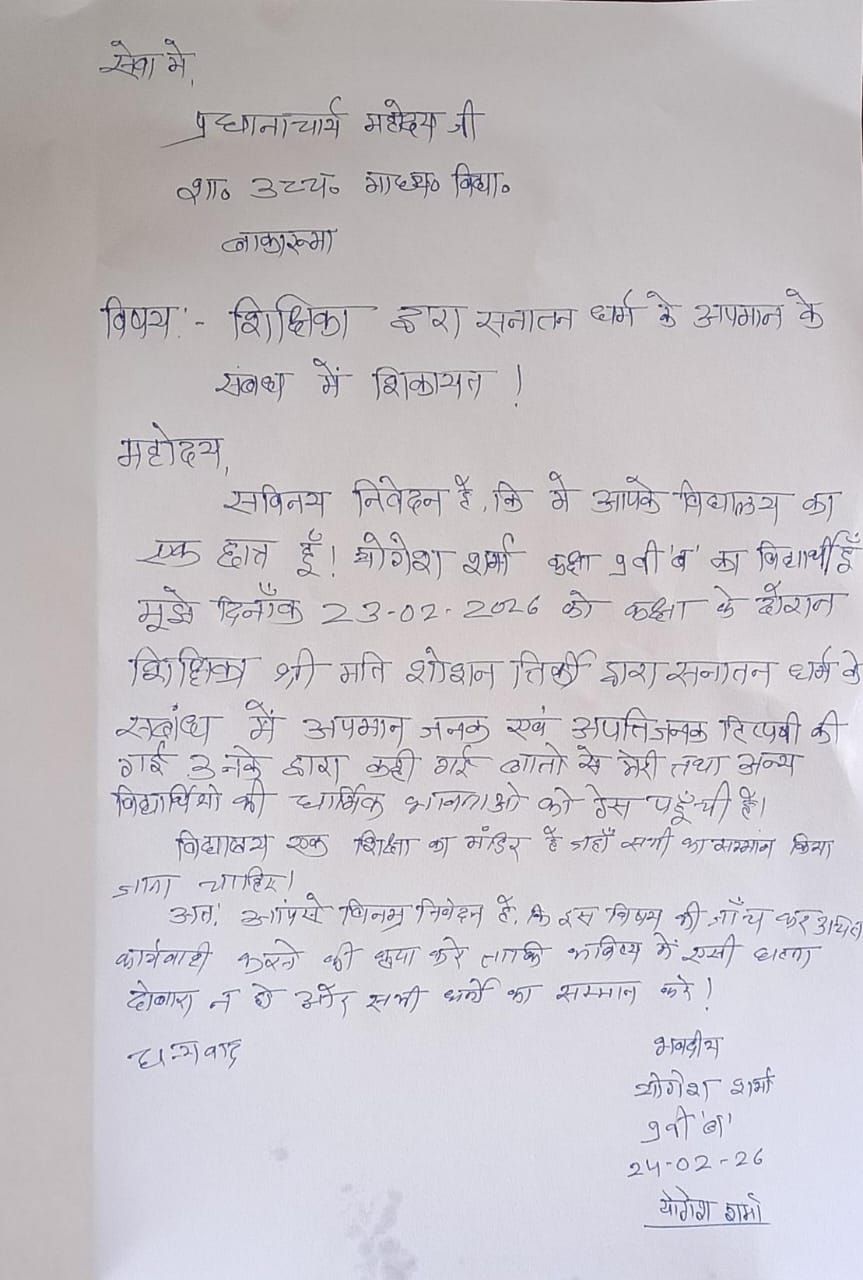 सेवा में,
प्रधानाचार्य महोदय जी
शा० उच्च० माध्य० विद्या०
बाकारूमा
विषय:- शिक्षिका द्वारा सनातन धर्म के अपमान के
संबंध में शिकायत !
महोदय,
सविनय निवेदन है, कि मे आपके विद्यालय का
एक छात्र हूँ! योगेश शर्मा कक्षा 9वी 'ब' का विद्यार्थी हूँ
मुझे दिनाँक 23-02-2026 को कक्षा के दौरान
शिक्षिका श्री मति शोशन तिर्की द्वारा सनातन धर्म के
सबांध में अपमान जनक एवं अपत्तिजनक टिप्पणी की
गई उनके द्वारा कही गई बातो से मेरी तथा अन्य
विद्यार्थियो की धार्मिक भावनाओ को ठेस पहूँची है।
विद्यालय एक शिक्षा का मंदिर है जहाँ सभी का सम्मान किया
जाना चाहिए।
अत: आपसे विनम्र निवेदन है, कि इस विषय की जाँच कर उचित
कार्यवाही करने की कृपा करे ताकि भविष्य में एसी घटना
दोबारा न हो और सभी धर्मो का सम्मान करे !
धन्यवाद
भवदीय
योगेश शर्मा
9वी 'ब'
24-02-26
योगेश शर्मा